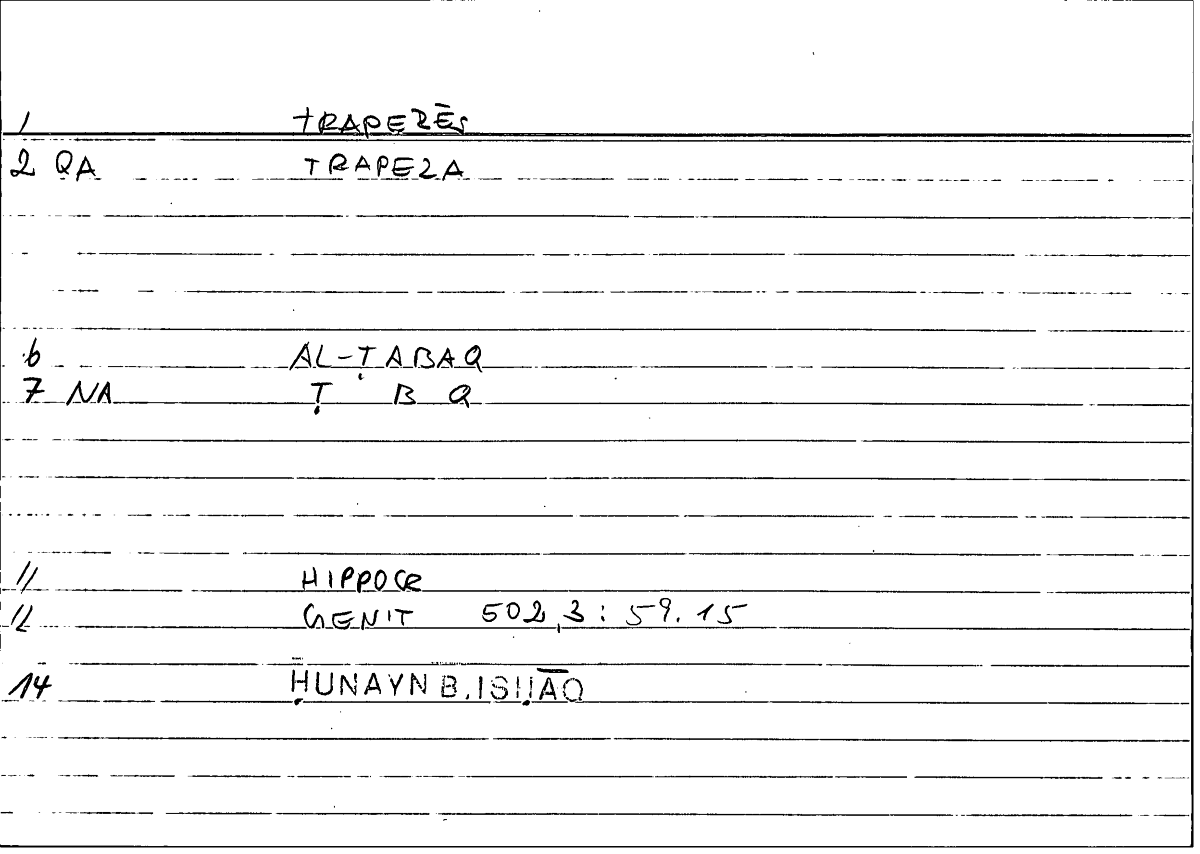 1 TRAPEZĒS
2 QA TRAPEZA
6 AL-ṬABAQ
7 NA Ṭ B Q
11 HIPPOCR
12 GENIT 502,3: 59.15
14 ḤUNAYN B. ISḤĀQ